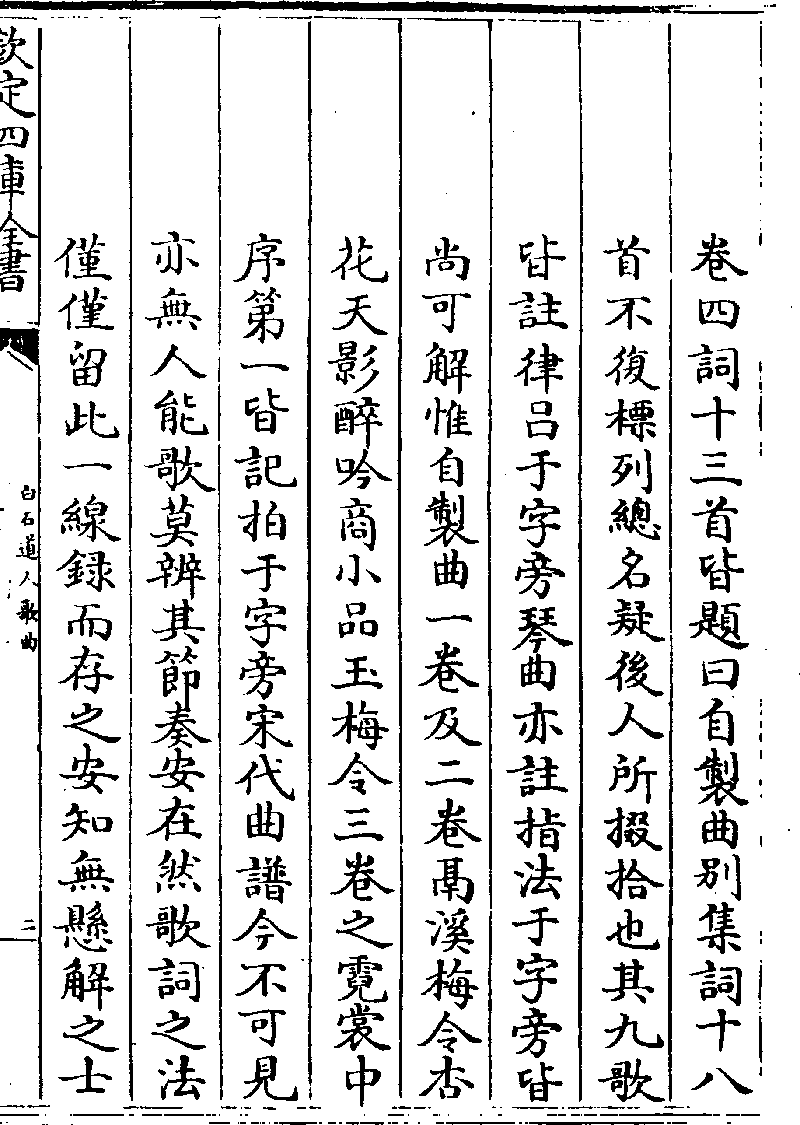 卷四詞十三首皆題曰自製曲别集詞十八
首不復標列總名疑後人所掇拾也其九歌
皆註律呂于字旁琴曲亦註指法于字旁皆
尚可解惟自製曲一卷及二卷鬲溪梅令杏
花天影醉吟商小品玉梅令三卷之霓裳中
序第一皆記拍于字旁宋代曲譜今不可見
亦無人能歌莫辨其節奏安在然歌詞之法
僅僅留此一線録而存之安知無懸解之士
欽定四庫全書
白石道人歌曲
二